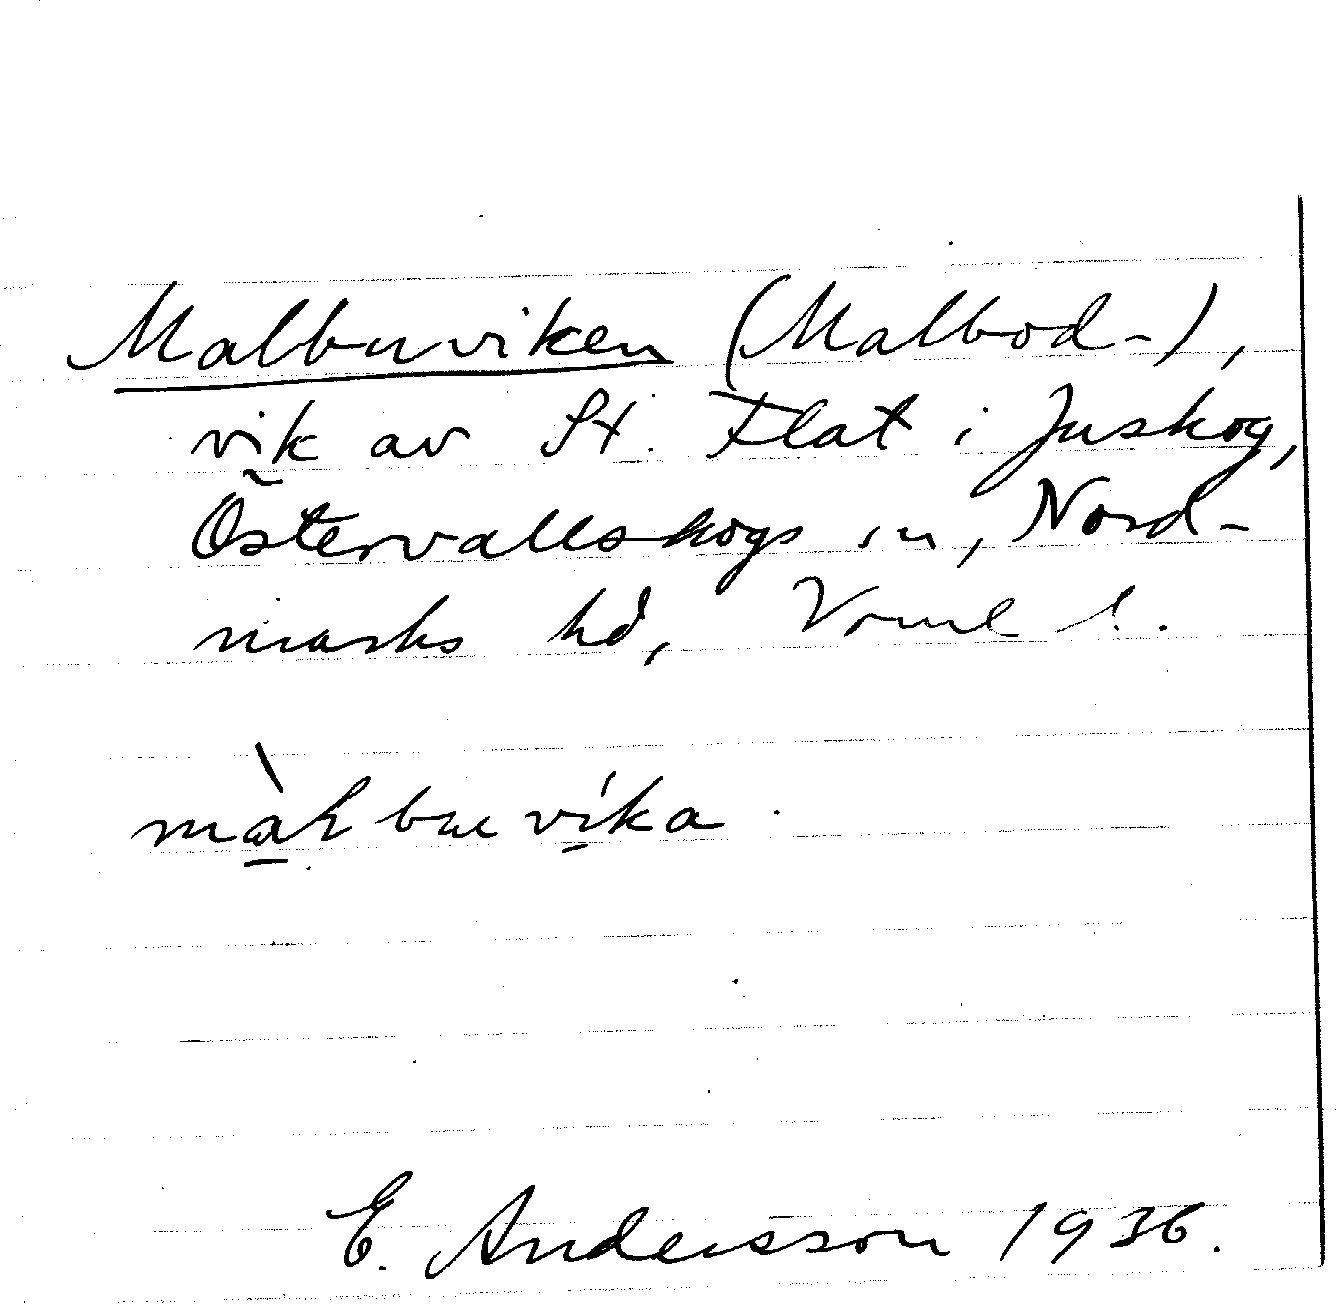 Malbuviken (Malbod-),
vik av St. Flat i Juskog,
Östervallskogs sn, Nord-
marks hd, Vrml.
màɫbuvíka.
E. Andersson 1936.